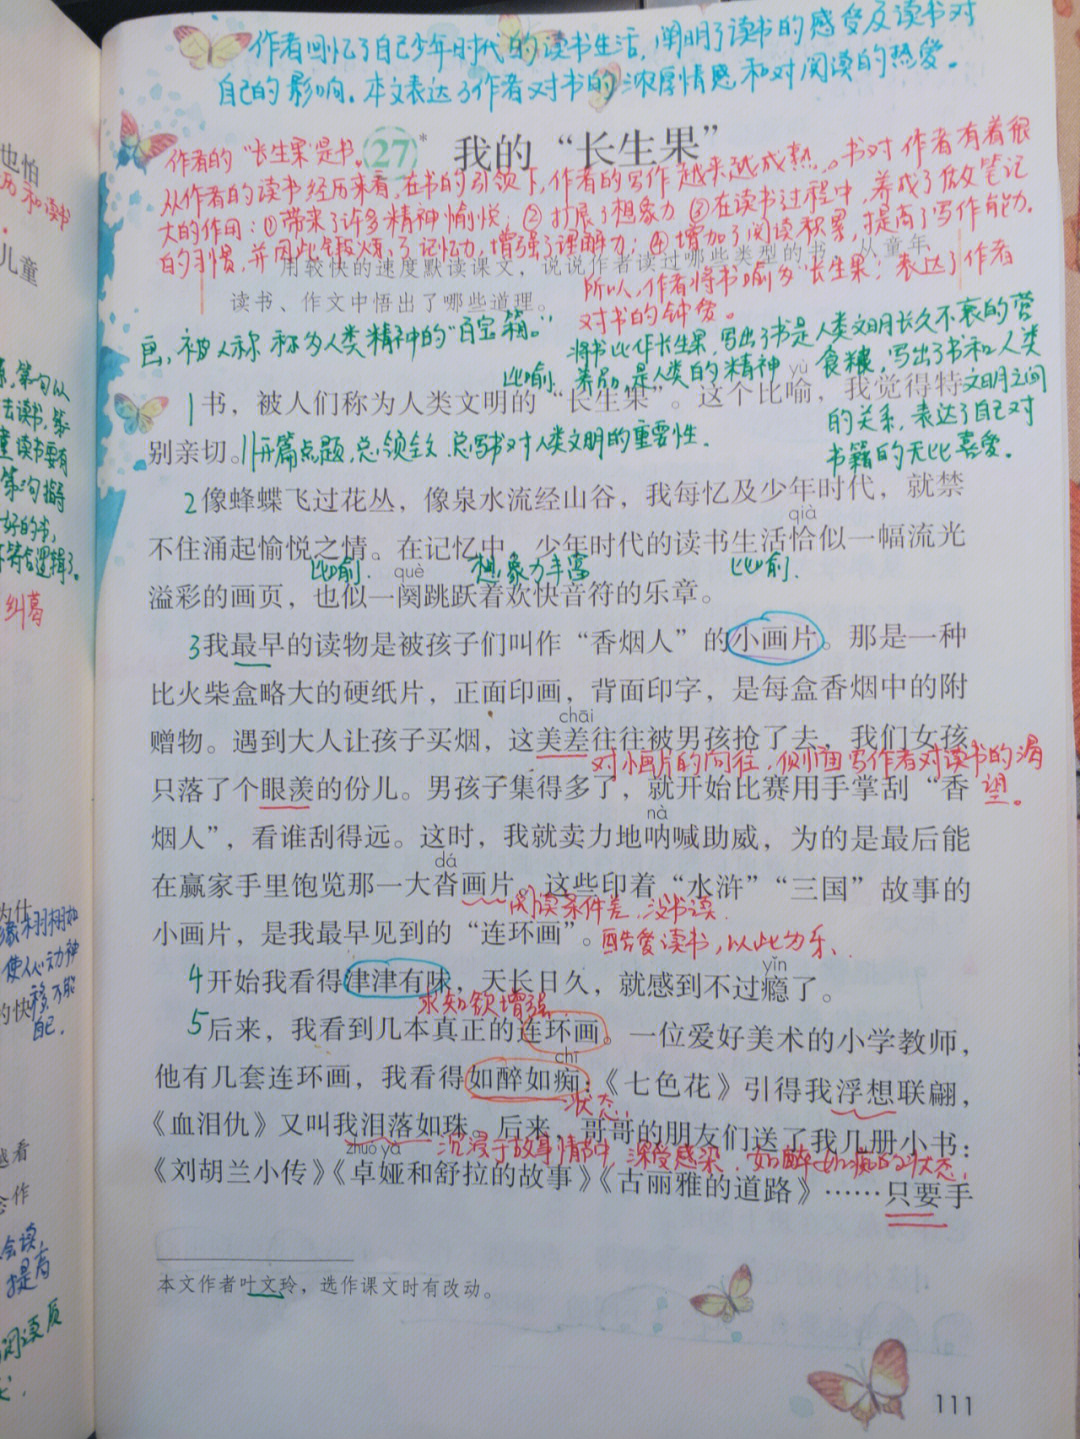 作者回忆了自己少年时代的读书生活，阐明了读书的感受及读书对
自己的影响。本文表达了作者对书的浓厚情感和对阅读的热爱。
27* 我的“长生果”
作者的“长生果”是书。
从作者的读书经历来看，在书的引领下，作者的写作越来越成熟。书对作者有着很
大的作用：①带来了许多精神愉悦；②扩展了想象力③在读书过程中，养成了做笔记
的习惯，并因此锻炼了记忆力，增强了理解力；④增加了阅读积累，提高了写作能力。
所以，作者将书喻为“长生果”，表达了作者
对书的钟爱。
用较快的速度默读课文，说说作者读过哪些类型的书，从童年
读书、作文中悟出了哪些道理。
被人称 称为人类精神的“百宝箱。”
将书比作长生果，写出了书是人类文明长久不衰的营
养品，是人类的精神食粮，写出了书和人类
文明之间
的关系，表达了自己对
书籍的无比喜爱。
比喻
yù
1书，被人们称为人类文明的“长生果”。这个比喻，我觉得特
别亲切。
开篇点题，总领全文.总写书对人类文明的重要性.
2像蜂蝶飞过花丛，像泉水流经山谷，我每忆及少年时代，就禁
qià
不住涌起愉悦之情。在记忆中，少年时代的读书生活恰似一幅流光
比喻. què 想象力丰富 比喻.
溢彩的画页，也似一阕跳跃着欢快音符的乐章。
3我最早的读物是被孩子们叫作“香烟人”的小画片。那是一种
比火柴盒略大的硬纸片，正面印画，背面印字，是每盒香烟中的附
chāi
赠物。遇到大人让孩子买烟，这美差往往被男孩抢了去，我们女孩
对小画片的向往，侧面写作者对读书的渴
望。
只落了个眼羡的份儿。男孩子集得多了，就开始比赛用手掌刮“香
nà
烟人”，看谁刮得远。这时，我就卖力地呐喊助威，为的是最后能
dá
在赢家手里饱览那一大沓画片。这些印着“水浒”“三国”故事的
阅读条件差，没书读.
小画片，是我最早见到的“连环画”。
酷爱读书，以此为乐.
yǐn
4开始我看得津津有味，天长日久，就感到不过瘾了。
求知欲增强.
5后来，我看到几本真正的连环画。一位爱好美术的小学教师，
chī
他有几套连环画，我看得如醉如痴：《七色花》引得我浮想联翩，
状态
《血泪仇》又叫我泪落如珠。后来，哥哥的朋友们送了我几册小书：
zhuó yà
沉浸于故事情节中，深受感染，如醉如痴的状态
《刘胡兰小传》《卓娅和舒拉的故事》《古丽雅的道路》……只要手
本文作者叶文玲，选作课文时有改动。
111
也怕
和读书
儿童
第一句以
去读书，第
读书要有
第三句指导
好的书，
符合逻辑了。
纠葛
为什
栩栩如
使人心动神
移，不能
自已.
的快
越看
念作
会读
提高
阅读质